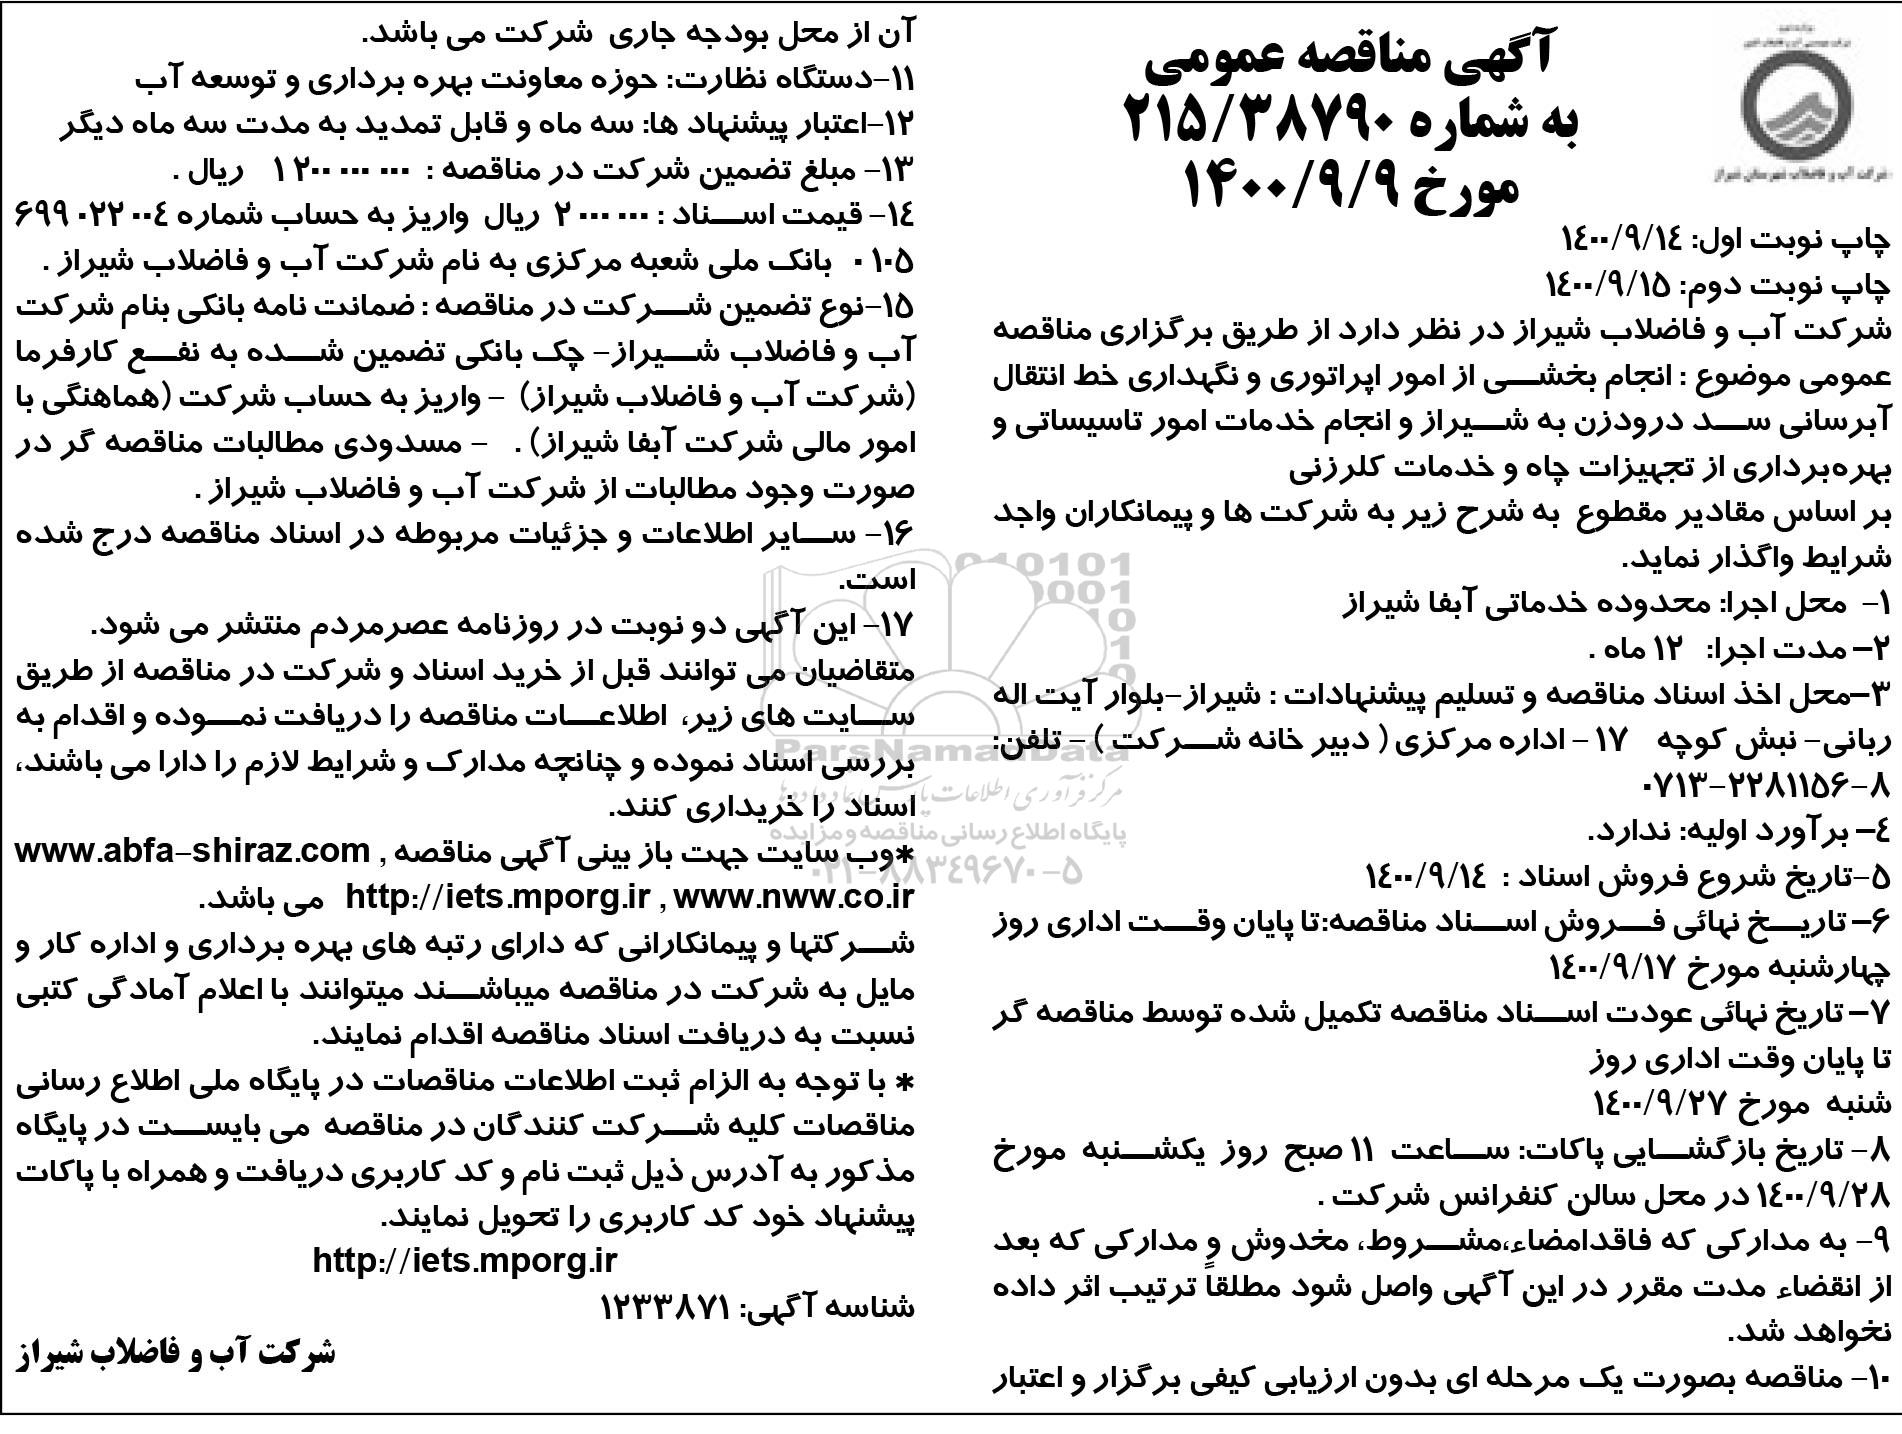 آگهی مناقصه عمومی
به شماره ۲۱۵/۳۸۷۹۰
مورخ ۱۴۰۰/۹/۹
شرکت آب و فاضلاب شهرستان شیراز
چاپ نوبت اول: ۱۴۰۰/۹/۱۴
چاپ نوبت دوم: ۱۴۰۰/۹/۱۵
شرکت آب و فاضلاب شیراز در نظر دارد از طریق برگزاری مناقصه
عمومی موضوع : انجام بخشی از امور اپراتوری و نگهداری خط انتقال
آبرسانی سد درودزن به شیراز و انجام خدمات امور تاسیساتی و
بهره‌برداری از تجهیزات چاه و خدمات کلرزنی
بر اساس مقادیر مقطوع به شرح زیر به شرکت ها و پیمانکاران واجد
شرایط واگذار نماید.
۱- محل اجرا: محدوده خدماتی آبفا شیراز
۲- مدت اجرا: ۱۲ ماه .
۳-محل اخذ اسناد مناقصه و تسلیم پیشنهادات : شیراز-بلوار آیت اله
ربانی- نبش کوچه ۱۷ - اداره مرکزی ( دبیر خانه شرکت ) - تلفن:
۰۷۱۳-۲۲۸۱۱۵۶-۸
۴- برآورد اولیه: ندارد.
۵-تاریخ شروع فروش اسناد : ۱۴۰۰/۹/۱۴
۶- تاریخ نهائی فروش اسناد مناقصه:تا پایان وقت اداری روز
چهارشنبه مورخ ۱۴۰۰/۹/۱۷
۷- تاریخ نهائی عودت اسناد مناقصه تکمیل شده توسط مناقصه گر
تا پایان وقت اداری روز
شنبه مورخ ۱۴۰۰/۹/۲۷
۸- تاریخ بازگشایی پاکات: ساعت ۱۱ صبح روز یکشنبه مورخ
۱۴۰۰/۹/۲۸ در محل سالن کنفرانس شرکت .
۹- به مدارکی که فاقدامضاء،مشروط، مخدوش و مدارکی که بعد
از انقضاء مدت مقرر در این آگهی واصل شود مطلقاً ترتیب اثر داده
نخواهد شد.
۱۰- مناقصه بصورت یک مرحله ای بدون ارزیابی کیفی برگزار و اعتبار
آن از محل بودجه جاری شرکت می باشد.
۱۱-دستگاه نظارت: حوزه معاونت بهره برداری و توسعه آب
۱۲-اعتبار پیشنهاد ها: سه ماه و قابل تمدید به مدت سه ماه دیگر
۱۳- مبلغ تضمین شرکت در مناقصه : ۱ ۲۰۰ ۰۰۰ ۰۰۰ ریال .
۱۴- قیمت اسناد : ۲ ۰۰۰ ۰۰۰ ریال واریز به حساب شماره ۰۰۴ ۰۲۲ ۶۹۹
۰۱۰۵ بانک ملی شعبه مرکزی به نام شرکت آب و فاضلاب شیراز .
۱۵-نوع تضمین شرکت در مناقصه : ضمانت نامه بانکی بنام شرکت
آب و فاضلاب شیراز- چک بانکی تضمین شده به نفع کارفرما
(شرکت آب و فاضلاب شیراز) - واریز به حساب شرکت (هماهنگی با
امور مالی شرکت آبفا شیراز) . - مسدودی مطالبات مناقصه گر در
صورت وجود مطالبات از شرکت آب و فاضلاب شیراز .
۱۶- سایر اطلاعات و جزئیات مربوطه در اسناد مناقصه درج شده
است.
۱۷- این آگهی دو نوبت در روزنامه عصرمردم منتشر می شود.
متقاضیان می توانند قبل از خرید اسناد و شرکت در مناقصه از طریق
سایت های زیر، اطلاعات مناقصه را دریافت نموده و اقدام به
بررسی اسناد نموده و چنانچه مدارک و شرایط لازم را دارا می باشند،
اسناد را خریداری کنند.
*وب سایت جهت باز بینی آگهی مناقصه , www.abfa-shiraz.com
http://iets.mporg.ir , www.nww.co.ir می باشد.
شرکتها و پیمانکارانی که دارای رتبه های بهره برداری و اداره کار و
مایل به شرکت در مناقصه میباشند میتوانند با اعلام آمادگی کتبی
نسبت به دریافت اسناد مناقصه اقدام نمایند.
* با توجه به الزام ثبت اطلاعات مناقصات در پایگاه ملی اطلاع رسانی
مناقصات کلیه شرکت کنندگان در مناقصه می بایست در پایگاه
مذکور به آدرس ذیل ثبت نام و کد کاربری دریافت و همراه با پاکات
پیشنهاد خود کد کاربری را تحویل نمایند.
http://iets.mporg.ir
شناسه آگهی: ۱۲۳۳۸۷۱
شرکت آب و فاضلاب شیراز
ParsNamadData
مرکز فرآوری اطلاعات پارس نماد داده ها
پایگاه اطلاع رسانی مناقصه و مزایده
۰۲۱-۸۸۳۴۹۶۷۰-۵